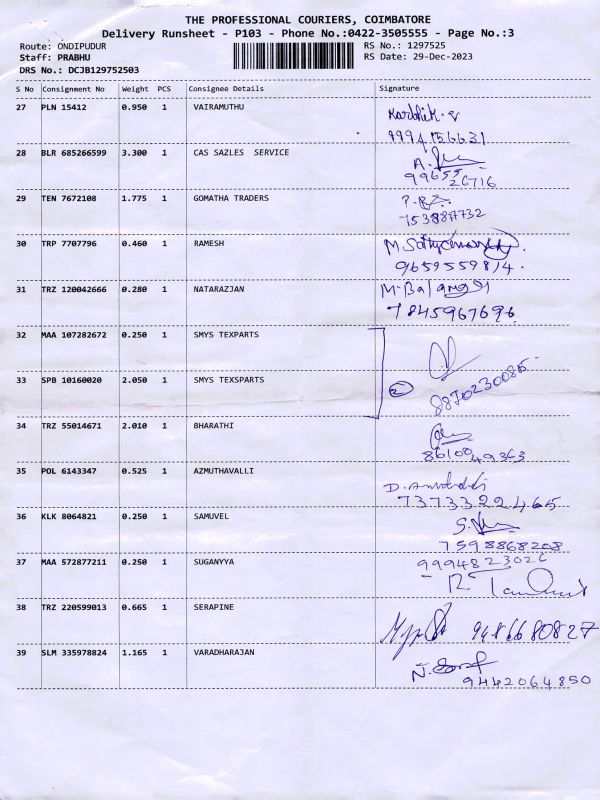 THE PROFESSIONAL COURIERS, COIMBATORE
Delivery Runsheet - P103 - Phone No.:0422-3505555 - Page No.:3
Route: ONDIPUDUR
RS No.: 1297525
Staff: PRABHU
RS Date: 29-Dec-2023
DRS No.: DCJB129752503
S No Consignment No Weight PCS Consignee Details Signature
27 PLN 15412 0.950 1 VAIRAMUTHU
Karthik. v
9994156631
28 BLR 685266599 3.300 1 CAS SAZLES SERVICE
A.
99655
26716
29 TEN 7672108 1.775 1 GOMATHA TRADERS
30 TRP 7707796 0.460 1 RAMESH
9659559814.
31 TRZ 120042666 0.280 1 NATARAZJAN
7845967696
32 MAA 107282672 0.250 1 SMYS TEXPARTS
33 SPB 10160020 2.050 1 SMYS TEXSPARTS
2
34 TRZ 55014671 2.010 1 BHARATHI
8610049363
35 POL 6143347 0.525 1 AZMUTHAVALLI
7373322465
36 KLK 8064821 0.250 1 SAMUVEL
7598868208
37 MAA 572877211 0.250 1 SUGANYYA
9994823026
38 TRZ 220599013 0.665 1 SERAPINE
9486680827
39 SLM 335978824 1.165 1 VARADHARAJAN
9442064850